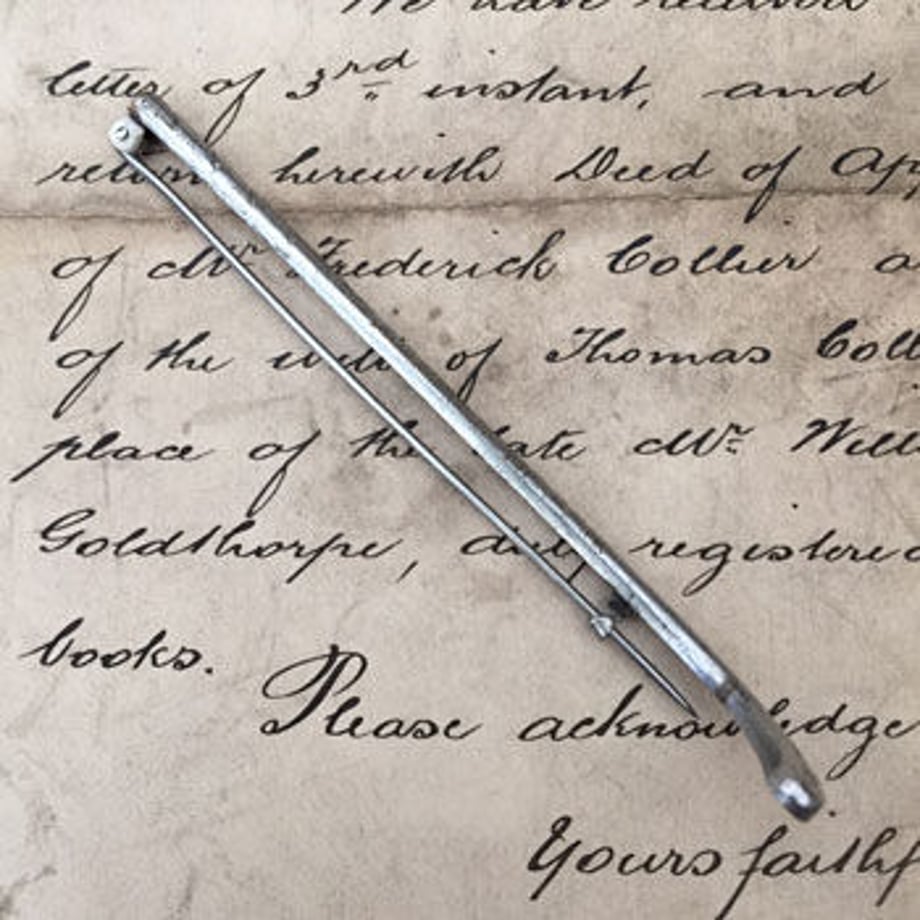 We have received
letter of 3rd instant, and
return herewith Deed of
of Mr Frederick Collier
of the will of Thomas
place of the late Mr
Goldthorpe, duly registered
books.
Please acknowledge
Yours